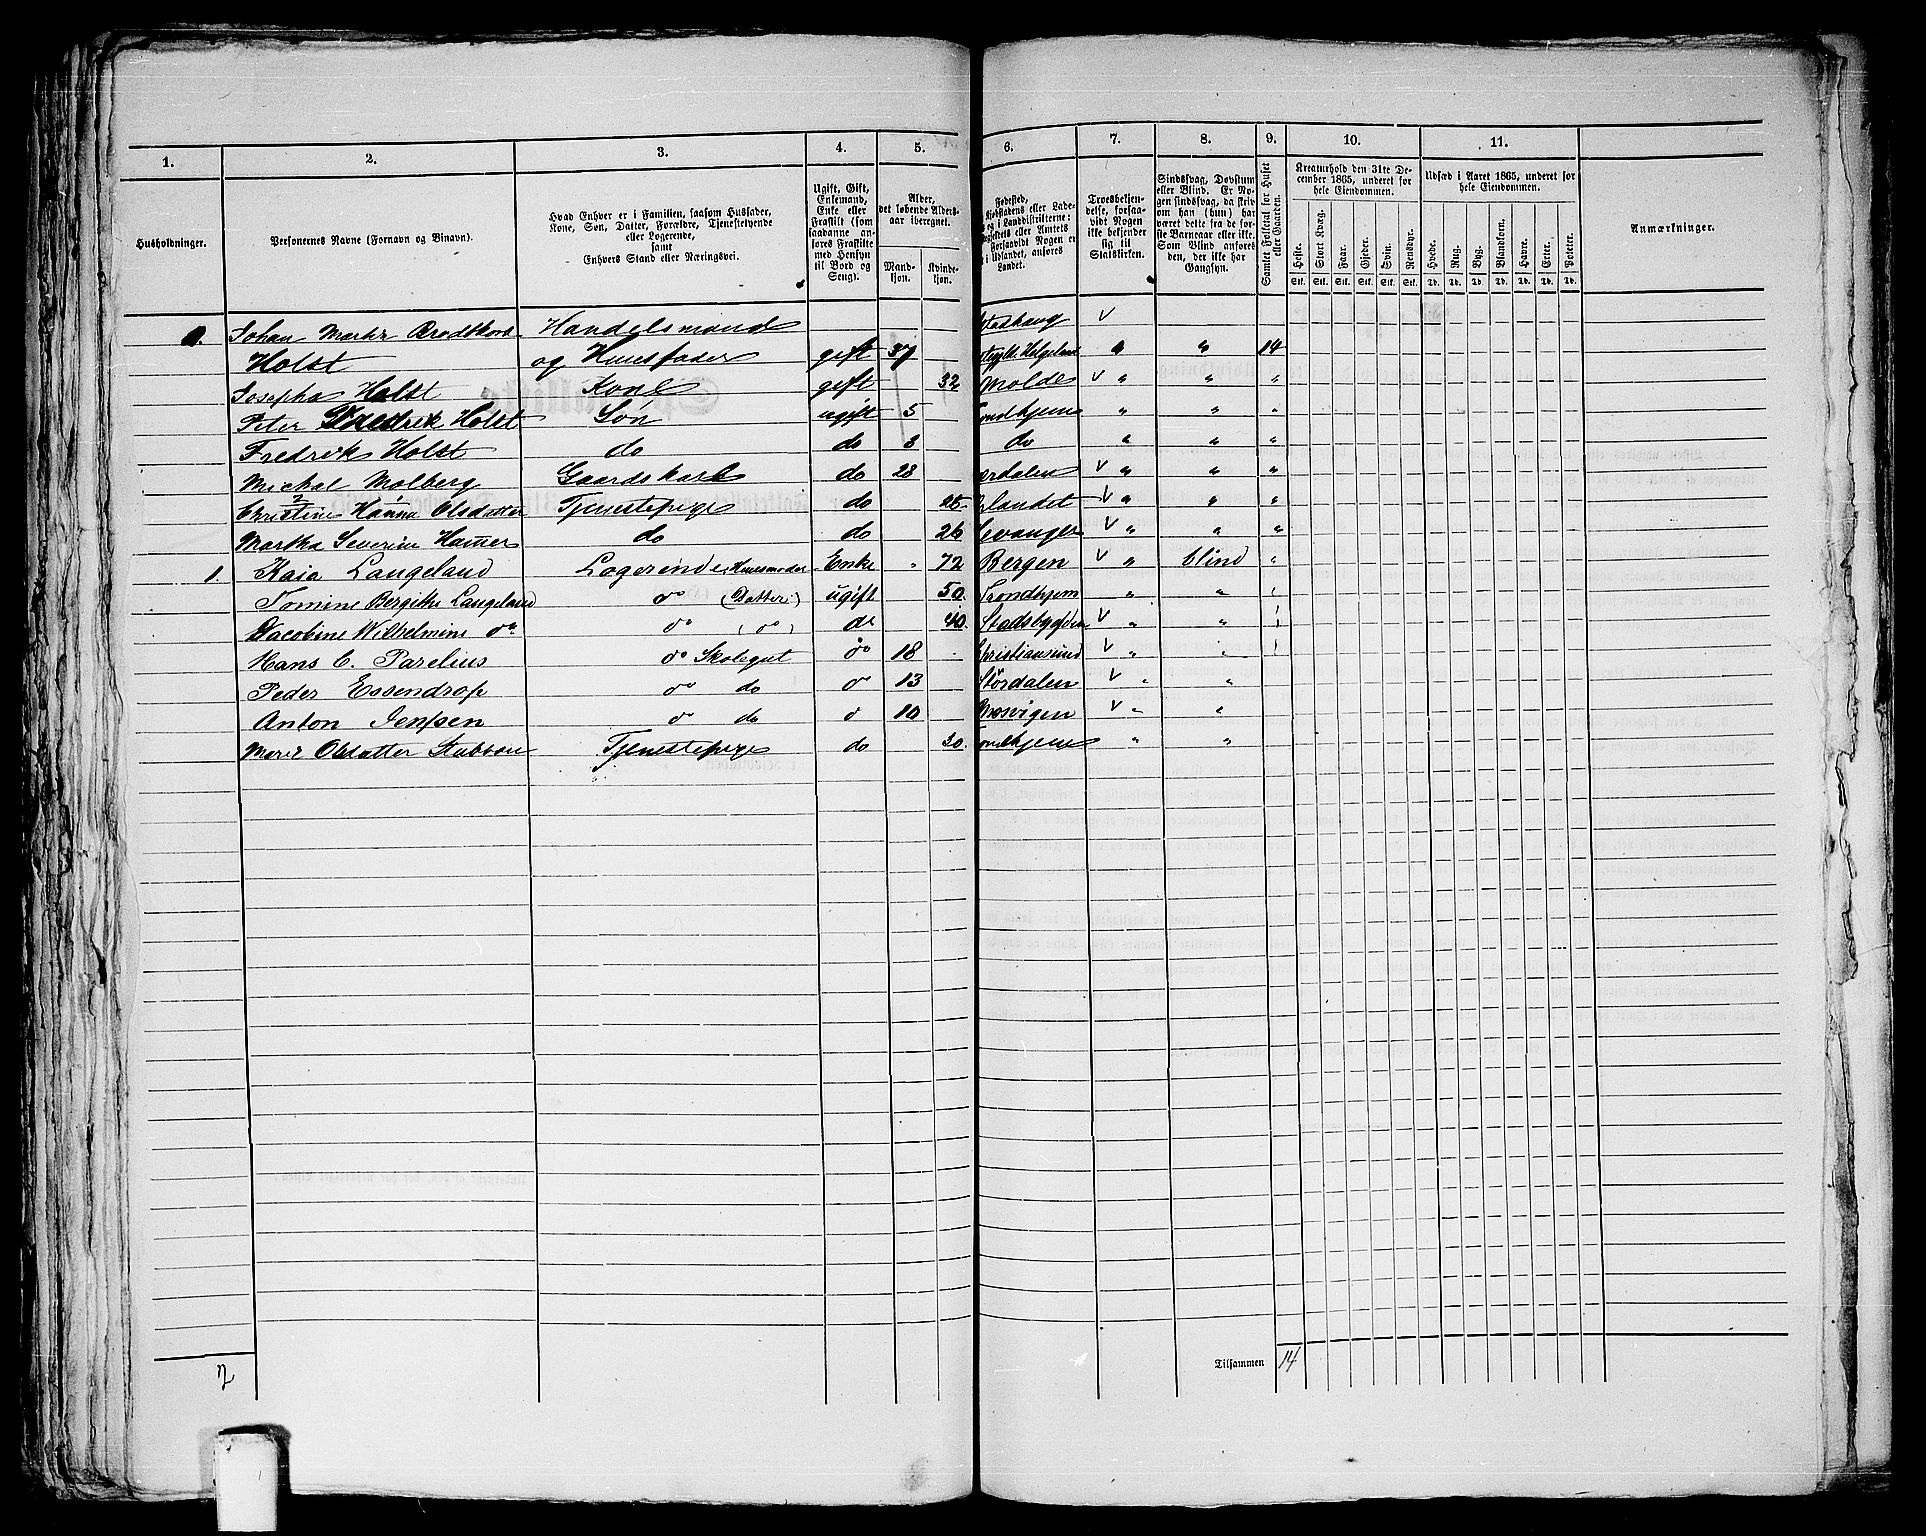 1. 2. 3. 4. 5. 6. 7. 8. 9. 10. 11.
Husholdninger.
Personernes Navne (Fornavn og Binavn).
Hvad Enhver er i Familien, saasom Husfader,
Kone, Søn, Datter, Forældre, Tjenestetyende
eller Logerende,
samt
Enhvers Stand eller Næringsvei.
Ugift, Gift,
Enkemand,
Enke eller
Fraskilt (som
saadanne an-
føres Fraskilte
med Hensyn
til Bord og
Seng).
Alder,
det løbende Alders-
aar iberegnet.
Mand-
kjøn.
Kvinde-
kjøn.
Fødested,
Kjøbstadens eller Lade-
og i Landdistrikterne:
Præstegjeldets eller Amtets
Forsaavidt Nogen er
i Udlandet, anføres
Landet.
Troesbekjen-
delse, forsaa-
vidt Nogen
ikke bekjender
sig til
Statskirken.
Sindssvag, Døvstum
eller Blind. Er No-
gen sindssvag, da skriv
om han (hun) har
været dette fra de før-
ste Barneaar eller ikke.
Som Blind anføres
den, der ikke har
Gangsyn.
Samlet Folketal for Huset
eller Gaarden.
Kreaturhold den 31te De-
cember 1865, underet for
hele Eiendommen.
Heste. Stort Kvæg. Faar. Gjeder. Svin. Rensdyr.
Stk. Stk. Stk. Stk. Stk. Stk.
Udsæd i Aaret 1865, underet for
hele Eiendommen.
Hvede. Rug. Byg. Blandkorn. Havre. Erter. Poteter.
Td. Td. Td. Td. Td. Td. Td.
Anmærkninger.
Johan Handelsmand Stadhaug v
Holst og Huusfader gift 37 Helgeland " " 14
Josepha Holst Kone gift 32 Molde v " " "
Peter Fredrik Holst Søn ugift 5 Trondhjem " " "
Fredrik Holst do do 3 do " " "
Michal Molberg Gaardskarl do 28 Værdalen v " " "
Christine Hanna Olsdatter Tjenestepige do 25 Ørlandet v " " "
Martha Severine Hamer do do 26 Levanger v " " "
1. Kaia Langeland Logerinde, Huusmoder Enke " 72 Bergen v " blind "
Tomine Bergithe Langeland do (Datter) ugift 50 Trondhjem " " "
Jacobine Wilhelmine do do (do) do 40 Stadsbygden v " "
Hans C. Parelius do Skolegut do 18 Christiansund v " "
Peder Essendrop do do do 13 Størdalen v " "
Anton Jenssen do do do 10 Mosvigen v " "
Olsdatter Tjenestepige do 30 Trondhjem " "
2
Tilsammen 14